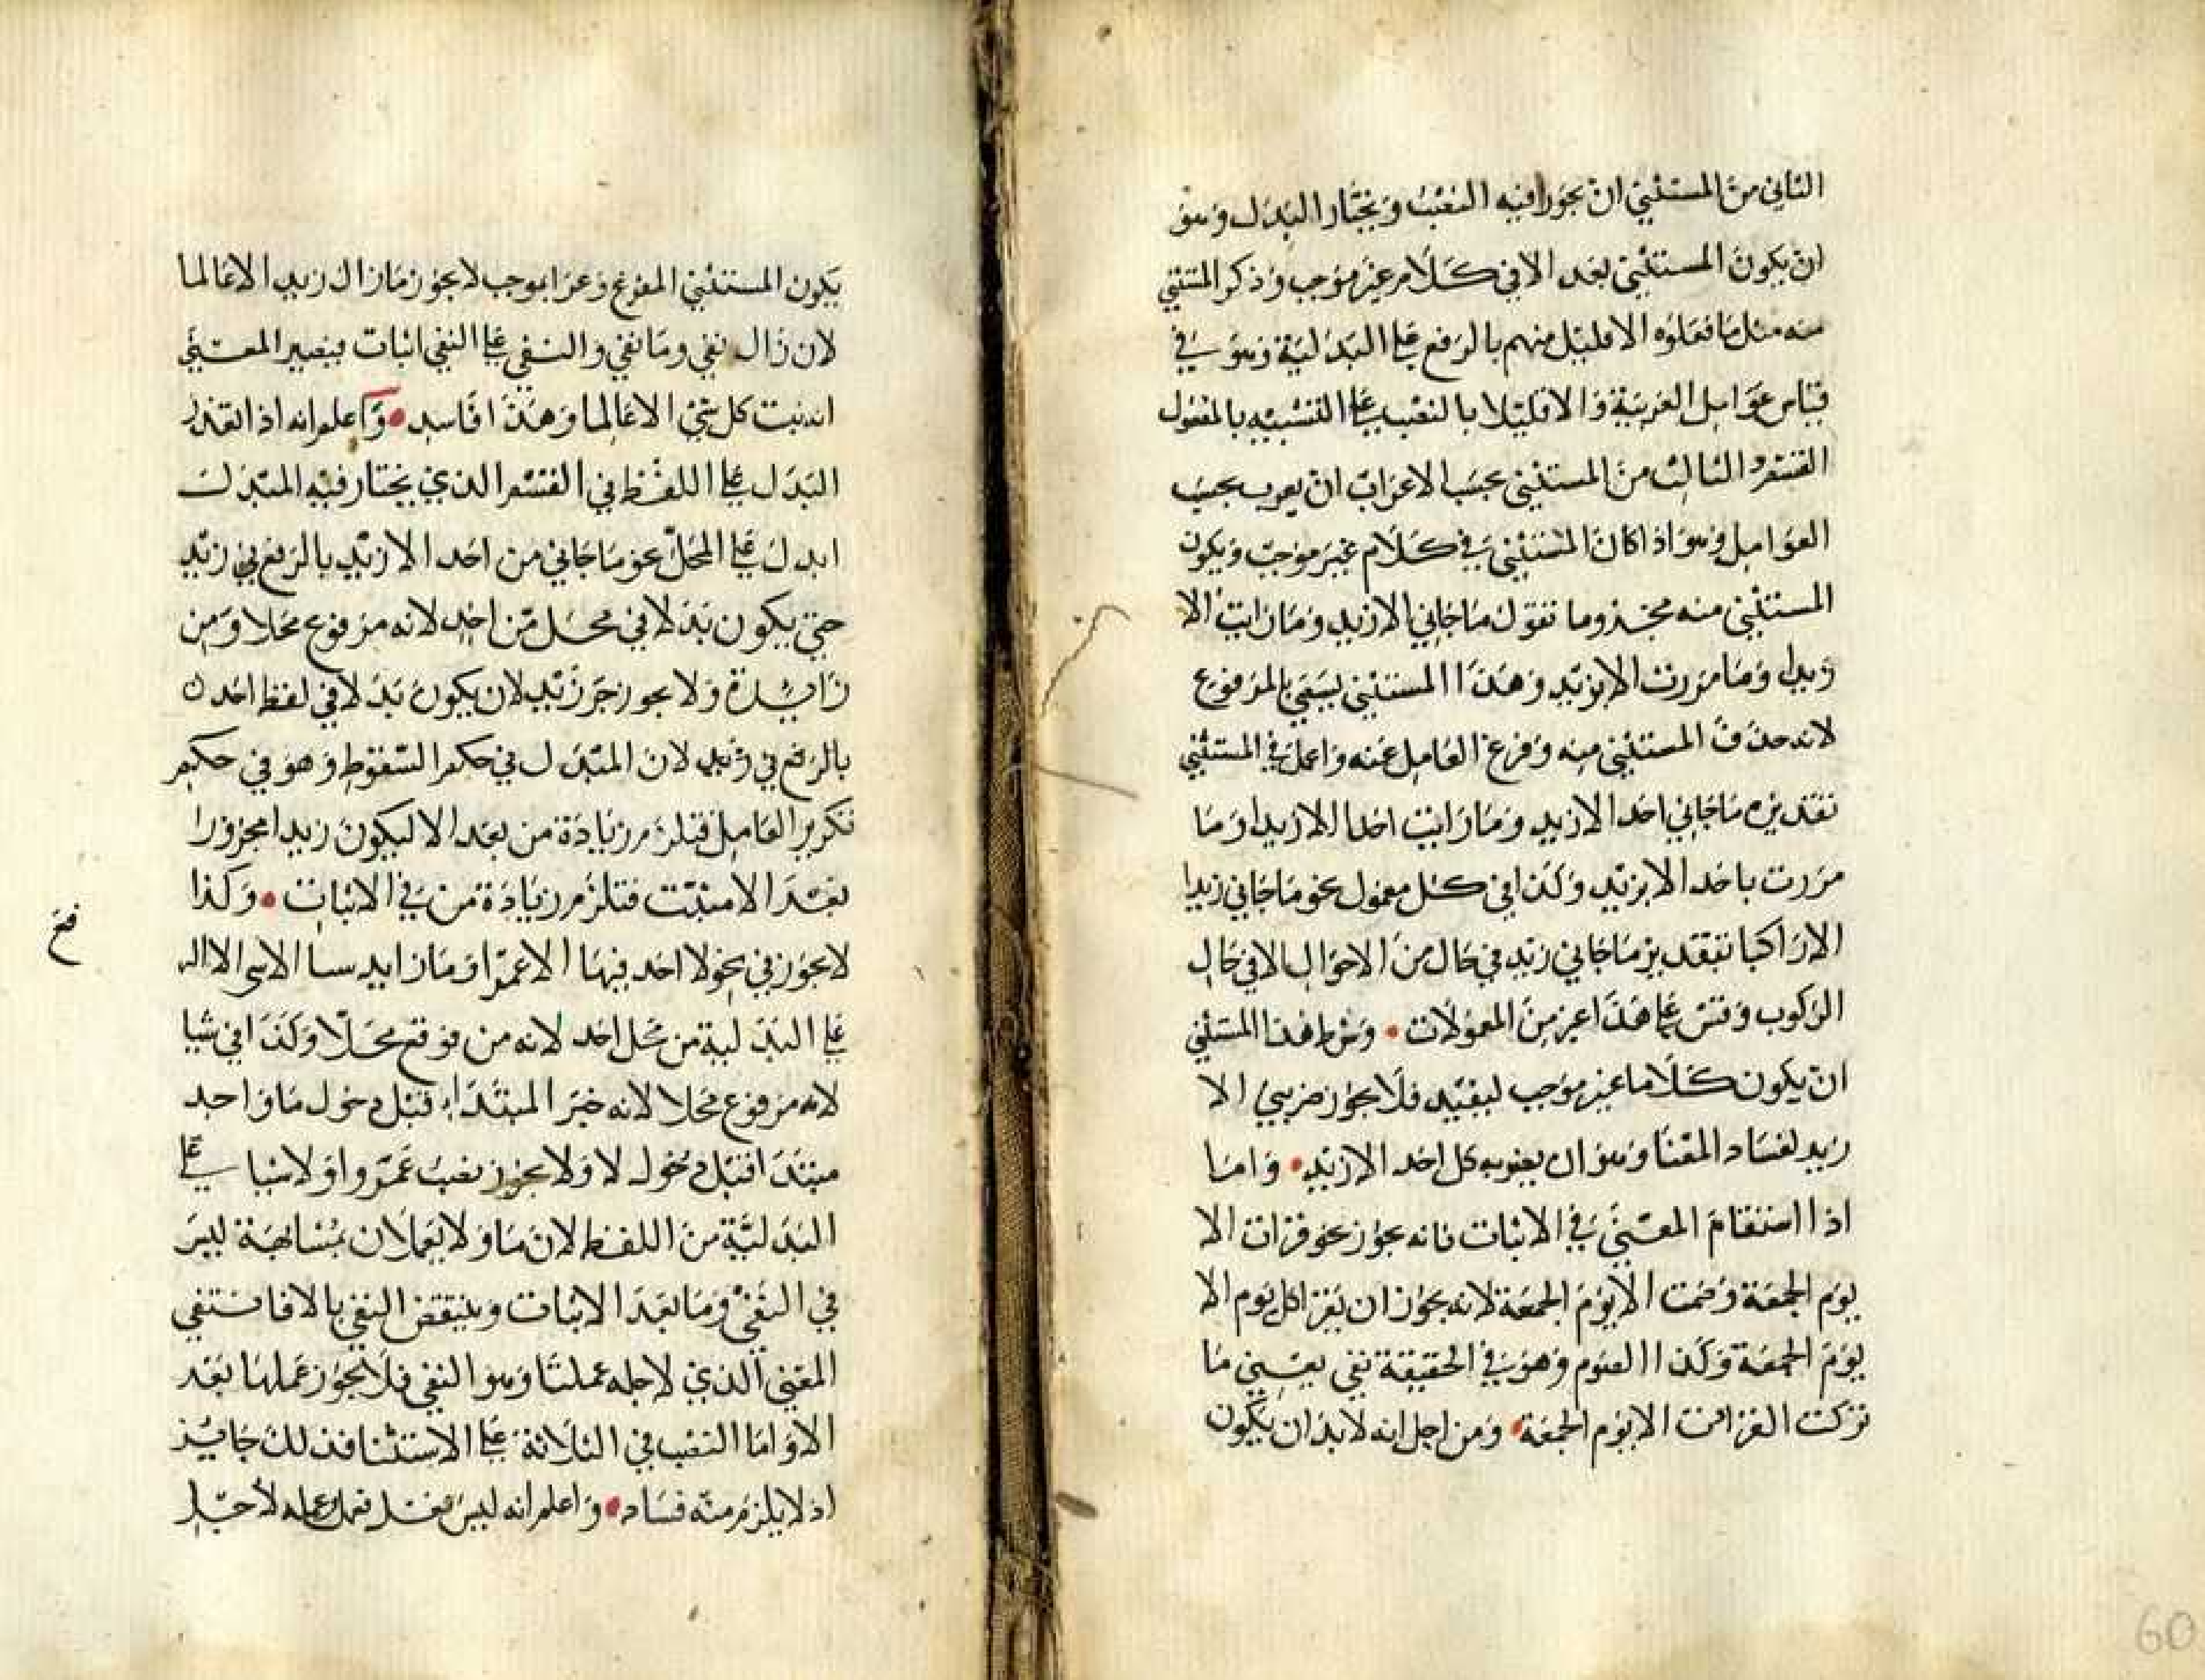 الثاني من المستثني ان يجوز فيه النصب ويختار البدل وهو
ان يكون المستثني بعد الا في كلام غير موجب وذكر المستثني
منه مثل ما فعلوه الا قليل منهم بالرفع علي البدلية وهو في
قياس عوامل العربية والا قليلا بالنصب علي التشبيه بالمفعول
القسم الثالث من المستثني بحسب الاعراب ان يعرب بحسب
العوامل وهو اذا كان المستثني في كلام غير موجب ويكون
المستثني منه محذوما تقول ما جاني الا زيد وما رايت الا
زيدا وما مررت الا بزيد وهذا المستثني يسمي بالمرفوع
لانه حذف المستثني منه وفرغ العامل عنه واعمل في المستثني
تقديره ما جاني احد الا زيد وما رايت احدا الا زيدا وما
مررت باحد الا بزيد وكذا في كل معمول نحو ما جاني زيدا
الا راكبا تقديره ما جاني زيد في حال من الاحوال الا في حال
الركوب وقس علي هذا غير من المعمولات • وشرط هذا المستثني
ان يكون كلاما غير موجب ليفيد فلا يجوز ضربني الا
زيد لفساد المعنا وهو ان يضربه كل احد الا زيد • واما
اذا استقام المعني في الاثبات فانه يجوز نحو قرات الا
يوم الجمعة وصمت الا يوم الجمعة لانه يجوز ان يقرا كل يوم الا
يوم الجمعة وكذا الصوم وهو في الحقيقة نفي بمعني ما
تركت القراة الا يوم الجمعة • ومن اجل انه لا بد ان يكون
60
يكون المستثني المفرغ وغير ايموجب لا يجوز ما زال زيد الا عالما
لان زال نفي وما نفي والنفي علي النفي اثبات فيصير المعني
انه ثبت كل شي الا عالما وهذا فاسد • واعلم انه اذا تعذر
البدل علي اللفظ في القسم الذي يختار فيه المبدل
ابدل علي المحل نحو ما جاني من احد الا زيد بالرفع في زيد
حتي يكون بدلا في محل من احد لانه مرفوع محلا ومن
زايدة ولا يجوز جر زيد لان يكون بدلا في لفظ احد
بالرفع في زيد لان المبدل في حكم السقوط وهو في حكم
تكرير العامل فيلزم زيادة من بعد الا ليكون زيدا مجرورا
بعد الا مثبت فتلزم زيادة من في الاثبات • وكذا
لا يجوز في نحو لا احد فيها الا عمرا وما زايد سيا الا شي الا
علي البدلية من محل احد لانه من فوقع محلا وكذا في شيا
لانه مرفوع محلا لانه خبر المبتداء قبل دخول ما واحد
مبتدا قبل دخول لا ولا يجوز نصب عمروا ولا شيا علي
البدلية من اللفظ لان ما ولا يعملان بمشابهة ليس
في النفي وما بعد الا اثبات وينتقض النفي بالا فانتفي
المعني الذي لاجله عملتا وهو النفي فلا يجوز عملها بعد
الا واما النصب في الثلاثة علي الاستثنا فذلك جايز
اذ لا يلزم منه فساد • واعلم انه ليس فعل فعمل عمله لاجل